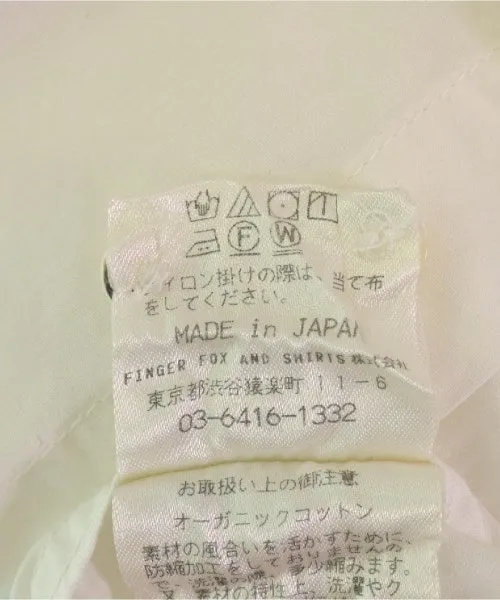 F W
アイロン掛けの際は、当て布
をしてください。
MADE in JAPAN
FINGER FOX AND SHIRTS 株式会社
東京都渋谷猿楽町11-6
03-6416-1332
お取扱い上の御注意
オーガニックコットン
素材の風合いを活かすために、
防縮加工をしておりませんの
で、洗濯の際、多少縮みます。
又、素材の特性上、洗濯やク